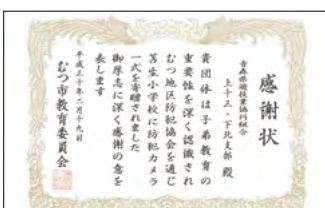 感謝状
青森県遊技業協同組合
上十三・下北支部 殿
貴団体は子弟教育の
重要性を深く認識され
むつ地区防犯協会を通じ
苫生小学校に防犯カメラ
一式を寄贈されました
御厚志に深く感謝の意を
表します
平成三十年二月十九日
むつ市教育委員会